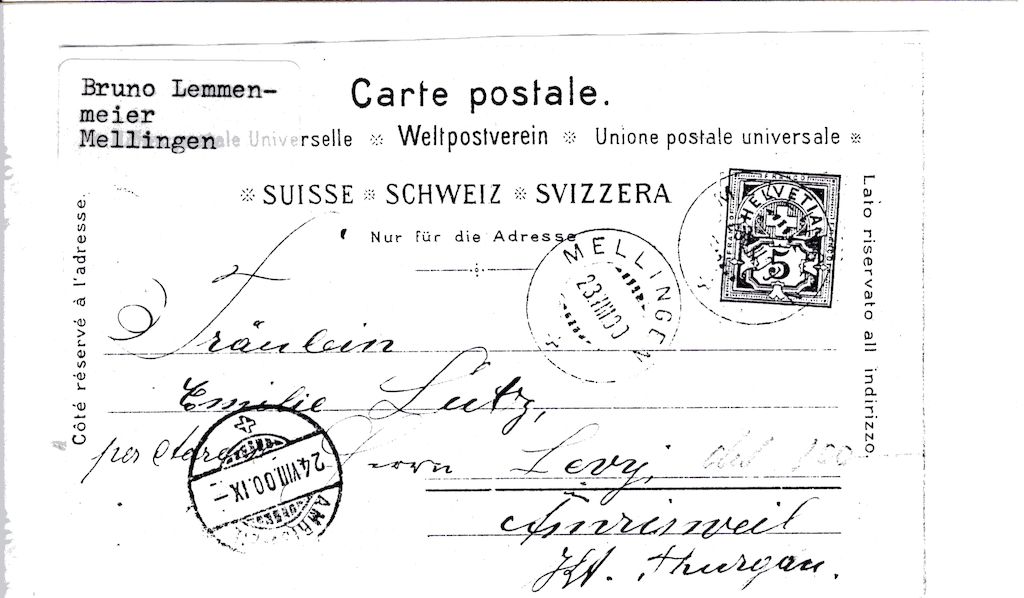 Bruno Lemmen-
meier
Mellingen
Carte postale.
ale Universelle ※ Weltpostverein ※ Unione postale universale ※
※ SUISSE ※ SCHWEIZ ※ SVIZZERA
Nur für die Adresse
Côté réservé à l'adresse.
Lato riservato all indirizzo.
FRANCO
HELVETIA
5
MELLINGEN
23.VIII.00
Fräulein
Emilie Lutz,
per
Herrn Levy,
Amrisweil
Kt. Thurgau.
24.VIII.00.IX-